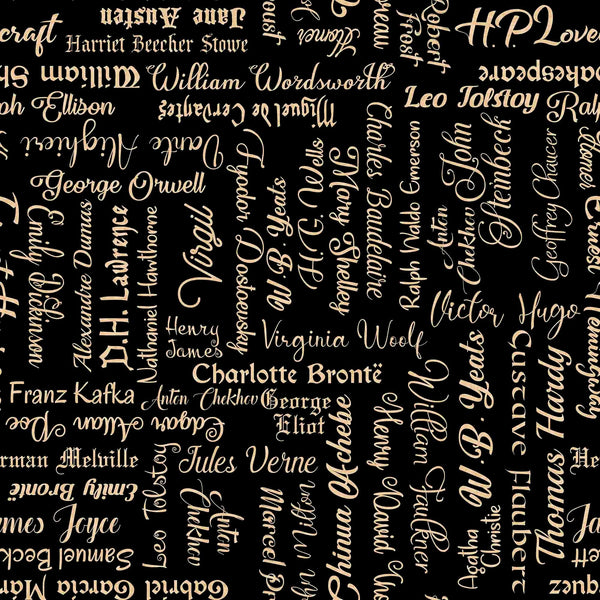 craft
Jane Austen
Homer
Robert Frost
H.P. Love
Harriet Beecher Stowe
William Sh
William Wordsworth
akespeare
ph Ellison
Miguel de Cervantes
Leo Tolstoy
Ral
Dante Alighieri
Charles Baudelaire
Ralph Waldo Emmerson
John Steinbeck
Geoffrey Chaucer
Homer
George Orwell
Fyodor Dostoevsky
W. B. Yeats
H.G. Wells
Mary Shelley
Anton Chekhov
Emily Dickinson
Alexandre Dumas
D.H. Lawrence
Nathaniel Hawthorne
Virgil
Ernest Hemingway
Victor Hugo
Henry
James
Virginia Woolf
Charlotte Brontë
Franz Kafka
Anton Chekhov
George
Eliot
William Faulkner
W.B. Yeats
Gustave Flaubert
Thomas Hardy
Edgar Allan Poe
rman Melville
Jules Verne
He
Emily Brontë
Leo Tolstoy
Anton Chekhov
Chinua Achebe
Henry David Tho
Agatha Christie
ames Joyce
Ja
Samuel Beck
ett
Marcel Pr
hn Milton
Gabriel Garcia Mar
quez